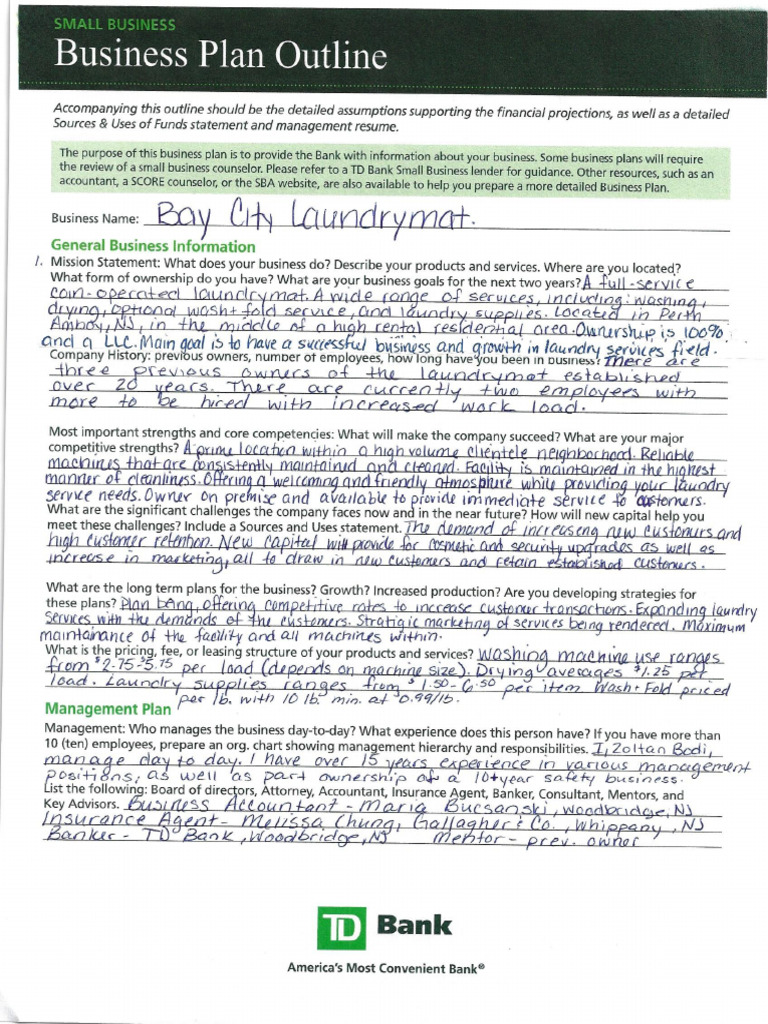 SMALL BUSINESS
Business Plan Outline
Accompanying this outline should be the detailed assumptions supporting the financial projections, as well as a detailed
Sources & Uses of Funds statement and management resume.
The purpose of this business plan is to provide the Bank with information about your business. Some business plans will require
the review of a small business counselor. Please refer to a TD Bank Small Business lender for guidance. Other resources, such as an
accountant, a SCORE counselor, or the SBA website, are also available to help you prepare a more detailed Business Plan.
Business Name: Bay City Laundrymat.
General Business Information
1. Mission Statement: What does your business do? Describe your products and services. Where are you located?
What form of ownership do you have? What are your business goals for the next two years? A full-service
coin-operated laundrymat. A wide range of services, including: washing,
drying, optional wash + fold service, and laundry supplies. Located in Perth
Amboy, NJ, in the middle of a high rental residential area. Ownership is 100%
and a LLC. Main goal is to have a successful business and growth in laundry services field.
Company History: previous owners, number of employees, how long have you been in business? There are
three previous owners of the laundrymat established
over 20 years. There are currently two employees with
more to be hired with increased work load.
Most important strengths and core competencies: What will make the company succeed? What are your major
competitive strengths? A prime location within a high volume clientele neighborhood. Reliable
machines that are consistently maintained and cleaned. Facility is maintained in the highest
manner of cleanliness. Offering a welcoming and friendly atmosphere while providing your laundry
service needs. Owner on premise and available to provide immediate service to customers.
What are the significant challenges the company faces now and in the near future? How will new capital help you
meet these challenges? Include a Sources and Uses statement. The demand of increaseng new customers and
high customer retention. New capital will provide for cosmetic and security upgrades as well as
increase in marketing, all to draw in new customers and retain established customers.
What are the long term plans for the business? Growth? Increased production? Are you developing strategies for
these plans? Plan being, offering competitive rates to increase customer transactions. Expanding laundry
services with the demands of the customers. Stratigic marketing of services being rendered. Maximum
maintainance of the facility and all machines within.
What is the pricing, fee, or leasing structure of your products and services? Washing machine use ranges
from $2.75-$5.75 per load (depends on machine size). Drying averages $1.25 per
load. Laundry supplies ranges from $1.50-6.50 per item. Wash + Fold priced
per lb. with 10 lb. min. at 0.99/lb.
Management Plan
Management: Who manages the business day-to-day? What experience does this person have? If you have more than
10 (ten) employees, prepare an org. chart showing management hierarchy and responsibilities. I, Zoltan Bodi,
manage day to day. I have over 15 years experience in various management
positions, as well as part ownership of a 10+year safety business.
List the following: Board of directors, Attorney, Accountant, Insurance Agent, Banker, Consultant, Mentors, and
Key Advisors. Business Accountant - Maria Bucsanski, Woodbridge, NJ
Insurance Agent - Melissa Chung, Gallagher & Co., Whippany, NJ
Banker - TD Bank, Woodbridge, NJ Mentor - prev. owner
TD Bank
America's Most Convenient Bank®